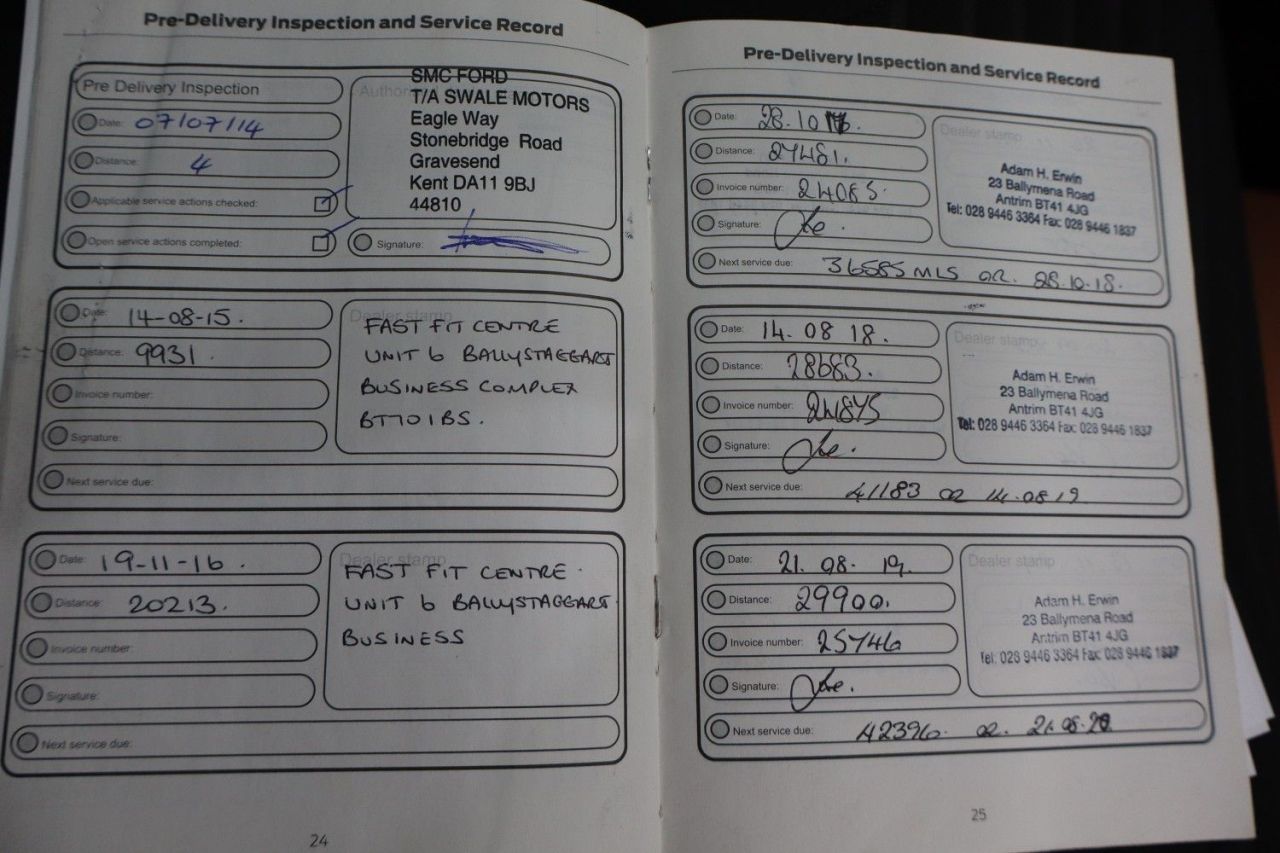 Pre-Delivery Inspection and Service Record
Pre Delivery Inspection
Date: 07/07/14
Distance: 4
Applicable service actions checked:
Open service actions completed:
SMC FORD
T/A SWALE MOTORS
Eagle Way
Stonebridge Road
Gravesend
Kent DA11 9BJ
44810
Signature:
Date: 14-08-15.
Distance: 9931.
Invoice number:
Signature:
Next service due:
Dealer stamp
FAST FIT CENTRE
UNIT 6 BALLYSTAGGART
BUSINESS COMPLEX
BT701BS.
Date: 19-11-16.
Distance: 20213.
Invoice number:
Signature:
Next service due:
Dealer stamp
FAST FIT CENTRE
UNIT 6 BALLYSTAGGART
BUSINESS
24
Pre-Delivery Inspection and Service Record
Date: 28.10
Distance: 27481.
Invoice number: 24085.
Signature:
Next service due: 36585 MLS OR. 28.10.18.
Dealer stamp
Adam H. Erwin
23 Ballymena Road
Antrim BT41 4JG
Tel: 028 9446 3364 Fax: 028 9446 1837
Date: 14.08 18.
Distance: 28683.
Invoice number: 24875
Signature:
Next service due: 41183 OR 14.08 19
Dealer stamp
Adam H. Erwin
23 Ballymena Road
Antrim BT41 4JG
Tel: 028 9446 3364 Fax: 028 9446 1837
Date: 21. 08. 19.
Distance: 29900.
Invoice number: 25746
Signature:
Next service due: 42396. OR. 21.08.20
Dealer stamp
Adam H. Erwin
23 Ballymena Road
Antrim BT41 4JG
Tel: 028 9446 3364 Fax: 028 9446 1837
25